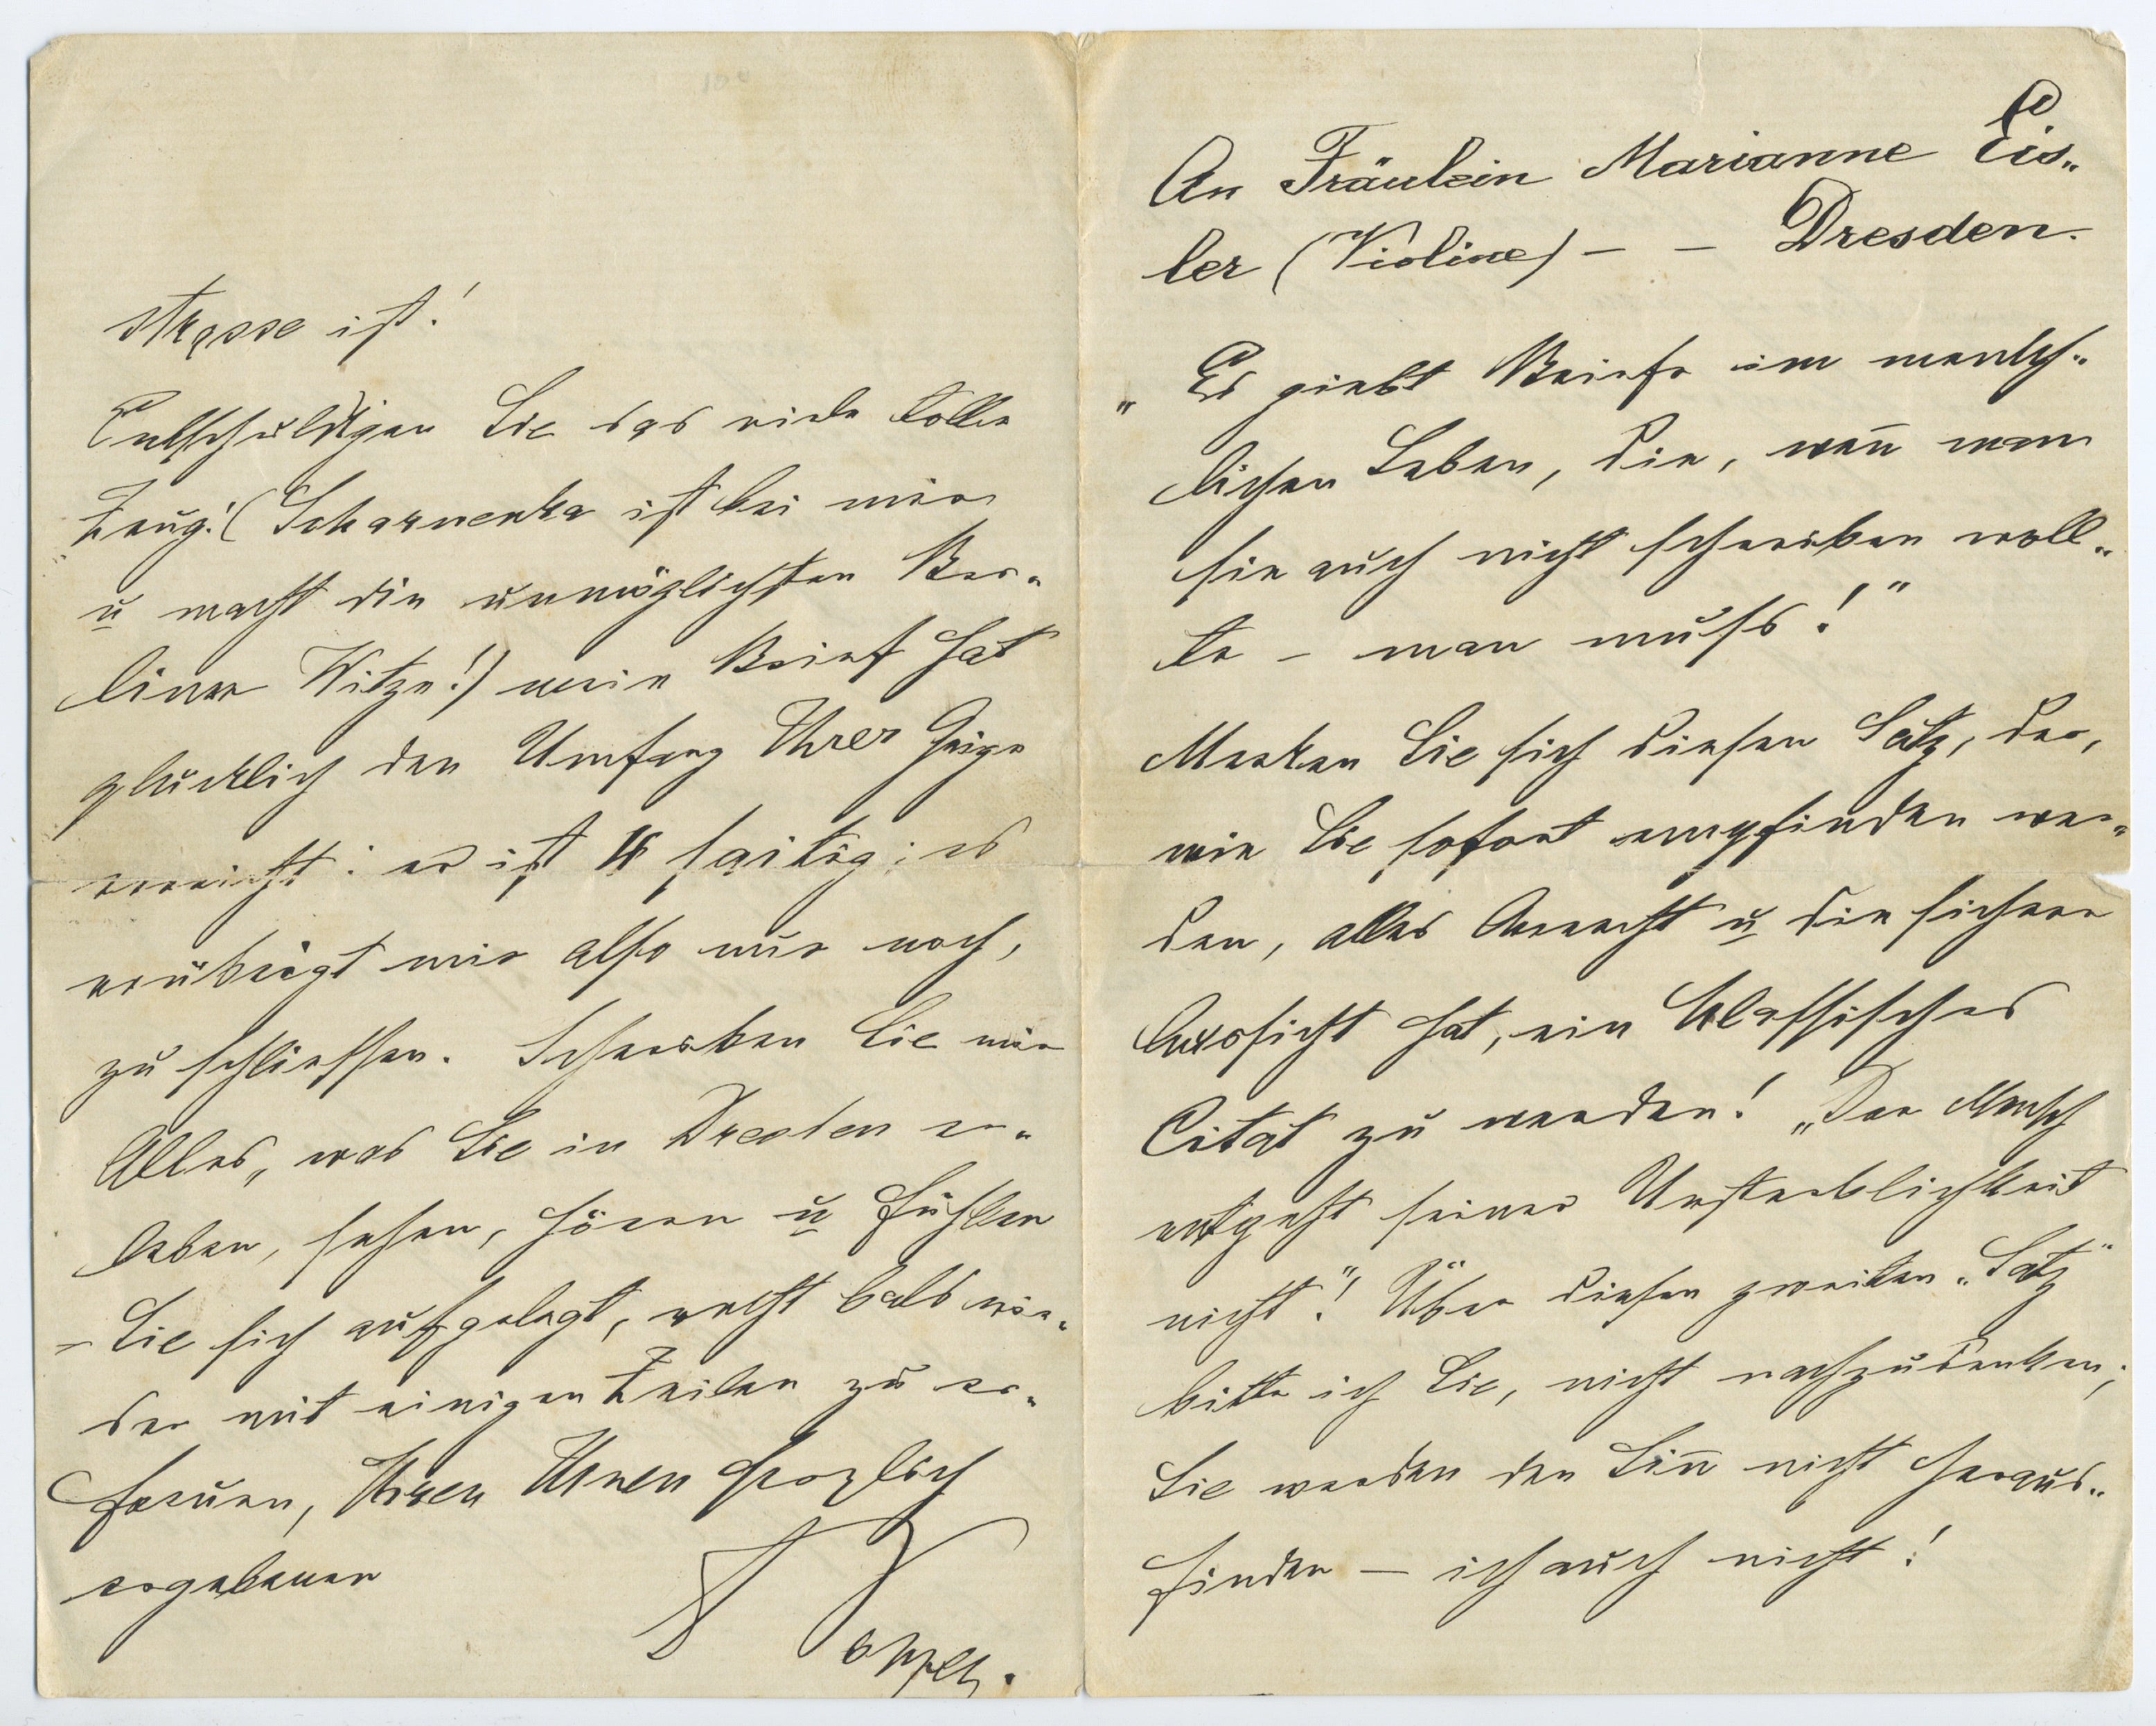 An Fräulein Marianne Eis„
ler (Violine) – – Dresden.
„Es giebt Briefe im mensch„
lichen Leben, die, wen̄ man
sie auch nicht schreiben woll„
te – man muſs!"
Merken Sie sich diesen Satz, der,
wie Sie sofort empfinden wer„
den, alles Anrecht u die sichere
Aussicht hat, ein klassisches
Citat zu werden! „Der Mensch
entgeht seiner Unsterblichkeit
nicht"! Über diesen zweiten „Satz"
bitte ich Sie, nicht nachzudenken;
Sie werden den Sin̄ nicht heraus„
finden – ich auch nicht!
strasse ist!
Entschuldigen Sie das viele tolle
Zeug! (Scharwenka ist bei mir
u macht die unmöglichsten Ber„
liner Witze!) mein Brief hat
glücklich den Umfang Ihrer Geige
erreicht: er ist 4 saitig; es
erübrigt mir also nur noch,
zu schliessen. Schreiben Sie mir
Alles, was Sie in Dresden er„
leben, sehen, hören u fühlen
– Sie sich aufgelegt, recht bald wie„
der mit einigen Zeilen zu er„
freuen, Ihren Ihnen herzlich
ergebenen